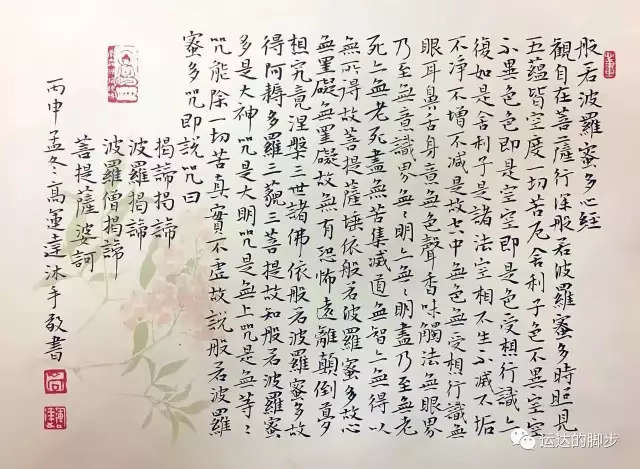 般若波羅蜜多心經
觀自在菩薩行深般若波羅蜜多時照見
五蘊皆空度一切苦厄舍利子色不異空空
不異色色即是空空即是色受想行識亦
復如是舍利子是諸法空相不生不滅不垢
不淨不增不減是故空中無色無受想行識無
眼耳鼻舌身意無色聲香味觸法無眼界
乃至無意識界無〻明亦無〻明盡乃至無老
死亦無老死盡無苦集滅道無智亦無得以
無所得故菩提薩埵依般若波羅蜜多故心
無罣礙無罣礙故無有恐怖遠離顛倒夢
想究竟涅槃三世諸佛依般若波羅蜜多故
得阿耨多羅三藐三菩提故知般若波羅蜜
多是大神咒是大明咒是無上咒是無等〻
咒能除一切苦真實不虛故說般若波羅
蜜多咒即說咒曰
揭諦揭諦
波羅揭諦
波羅僧揭諦
菩提薩婆訶
丙申孟冬高運達沐手敬書
运达的脚步